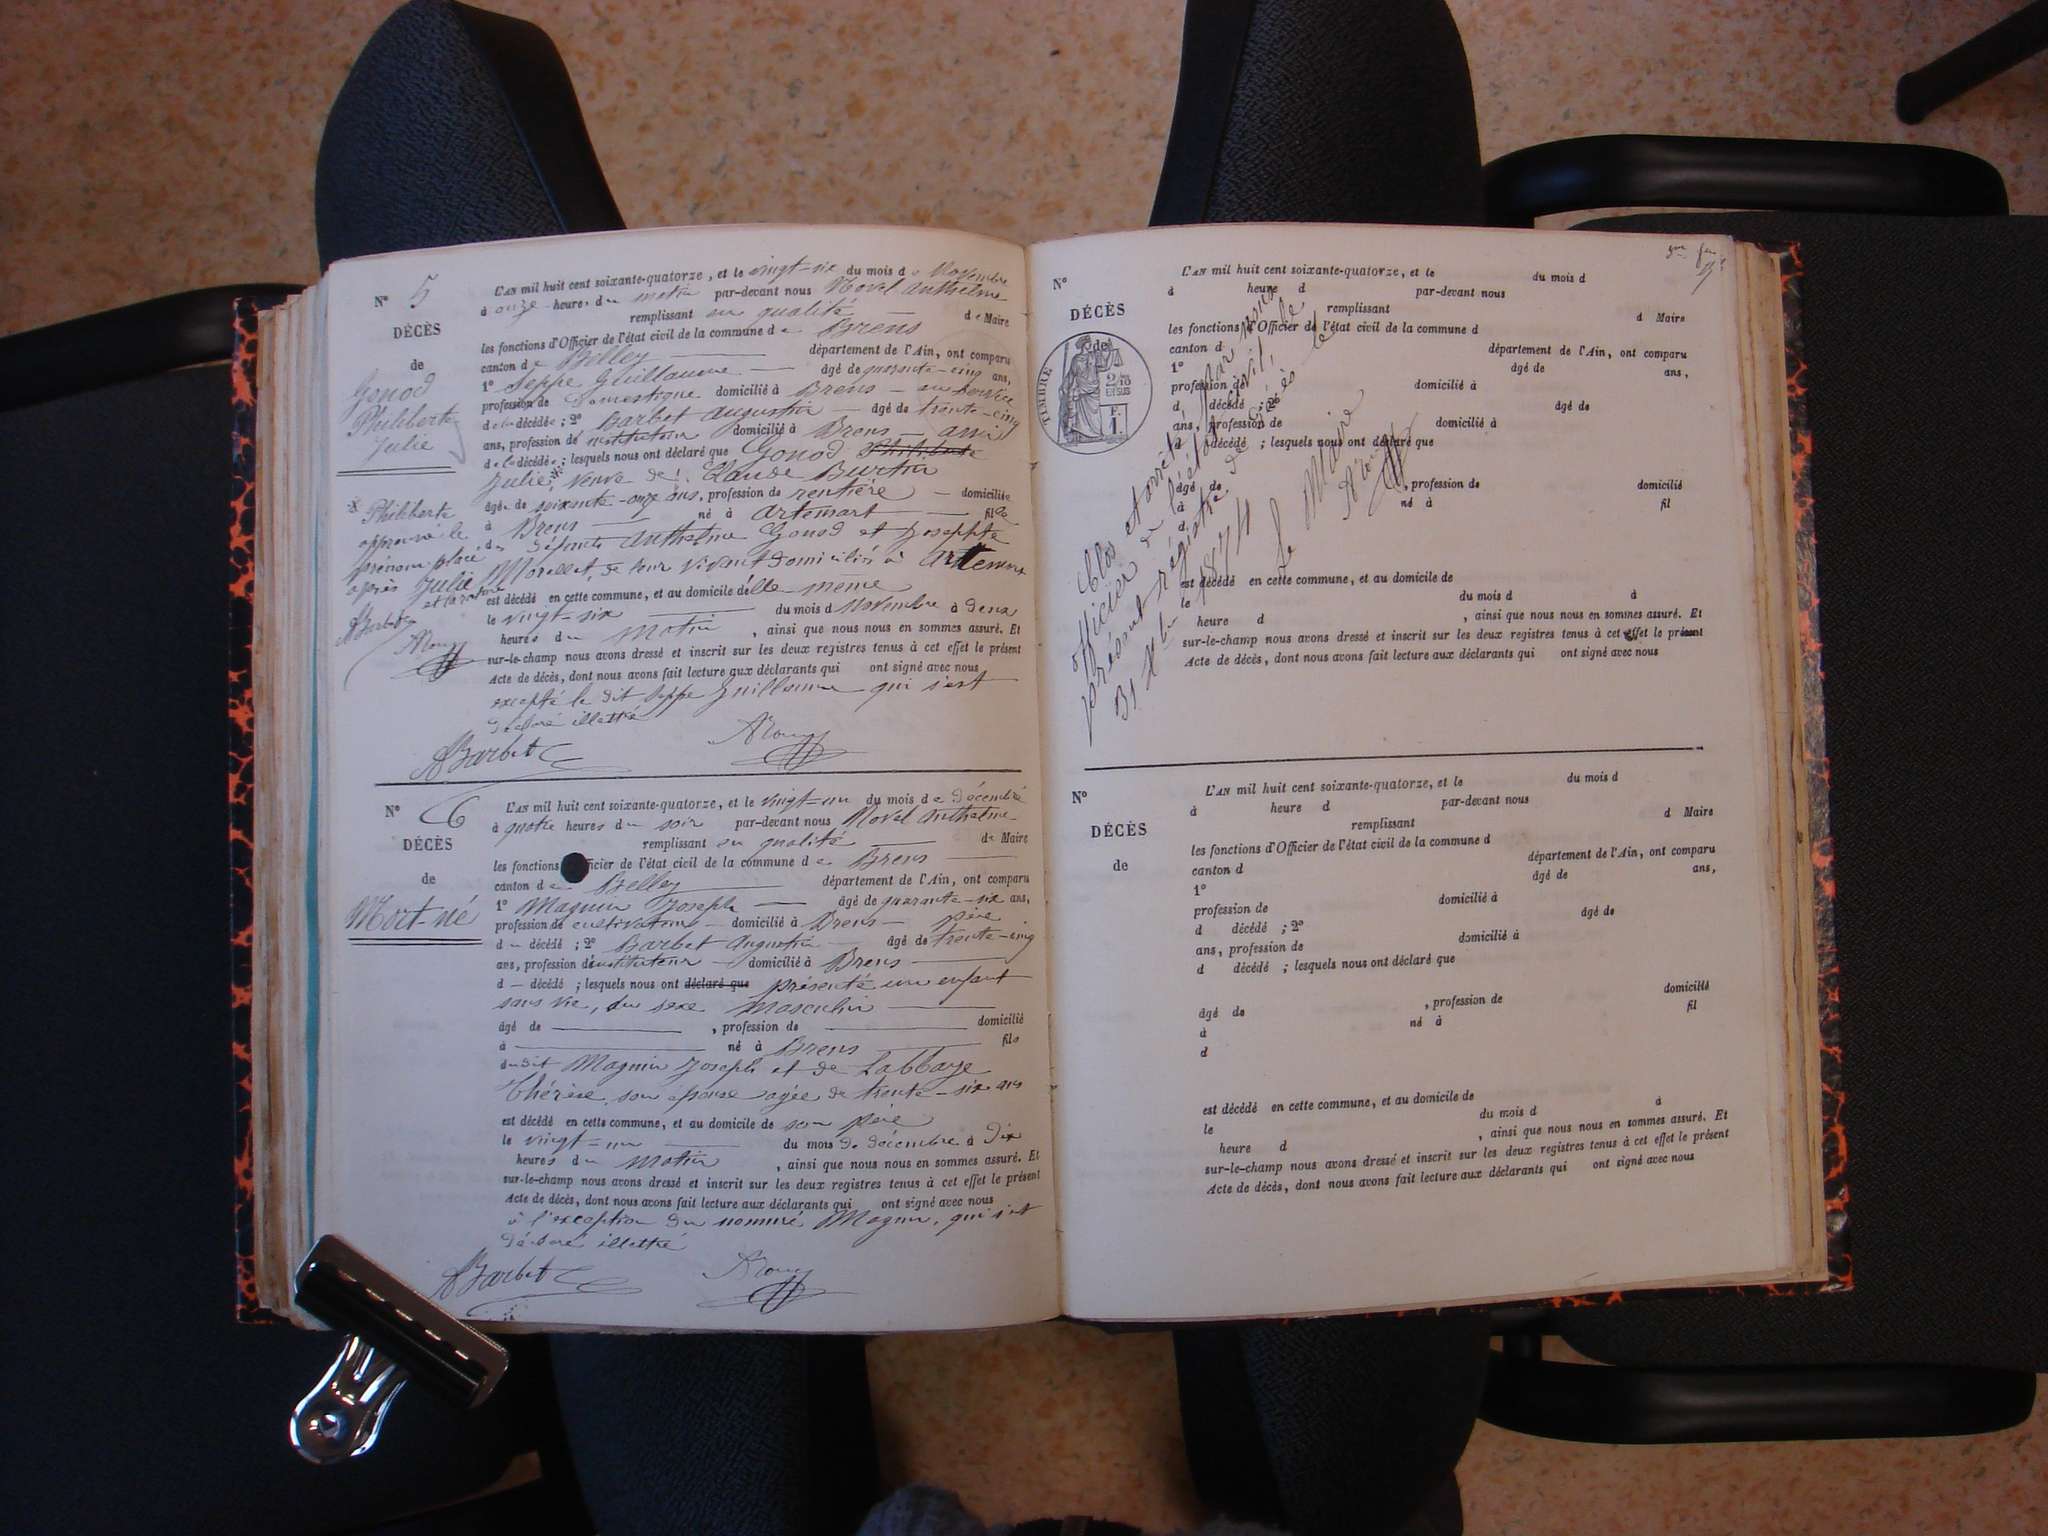 N° 5
DÉCÈS
de
Gonod
Philiberte
Julie
L'AN mil huit cent soixante-quatorze, et le vingt-six du mois de Novembre
à onze heures du matin par-devant nous Rovel Anthelme
remplissant en qualité de Maire
les fonctions d'Officier de l'état civil de la commune de Brens
canton de Belley département de l'Ain, ont comparu
1° Seppe Guillaume âgé de quarante-cinq ans,
profession de Domestique domicilié à Brens au service
de la décédée ; 2° Barbet Augustin âgé de trente-cinq
ans, profession de instituteur domicilié à Brens ami
de la décédée ; lesquels nous ont déclaré que Gonod Philiberte
Julie, veuve de Claude Burtin
âgée de soixante-onze ans, profession de rentière domiciliée
à Brens né à Artemart fille
des défunts Anthelme Gonod et Josephte
Morellet, de leur vivant domiciliés à Artemart
est décédé en cette commune, et au domicile d'elle même
le vingt-six du mois d Novembre à deux
heures du matin, ainsi que nous nous en sommes assuré. Et
sur-le-champ nous avons dressé et inscrit sur les deux registres tenus à cet effet le présent
Acte de décès, dont nous avons fait lecture aux déclarants qui ont signé avec nous
excepté le dit Seppe Guillaume qui s'est
déclaré illettré
ABarbet
Philiberte
approuvé le
prénom placé
après Julie
ABarbet
N° 6
DÉCÈS
de
Mort-né
L'AN mil huit cent soixante-quatorze, et le vingt-un du mois de Décembre
à quatre heures du soir par-devant nous Rovel Anthelme
remplissant en qualité de Maire
les fonctions d'Officier de l'état civil de la commune de Brens
canton de Belley département de l'Ain, ont comparu
1° Magnin Joseph âgé de quarante-six ans,
profession de cultivateur domicilié à Brens père
du décédé ; 2° Barbet Augustin âgé de trente-cinq
ans, profession d'instituteur domicilié à Brens
d décédé ; lesquels nous ont déclaré que présenté un enfant
sans vie, du sexe masculin
âgé de , profession de domicilié
à né à Brens fils
dudit Magnin Joseph et de Labbaye
Thérèse son épouse agée de trente-six ans
est décédé en cette commune, et au domicile de son père
le vingt-un du mois de décembre à dix
heures du matin, ainsi que nous nous en sommes assuré. Et
sur-le-champ nous avons dressé et inscrit sur les deux registres tenus à cet effet le présent
Acte de décès, dont nous avons fait lecture aux déclarants qui ont signé avec nous
à l'exception du nommé Magnin, qui s'est
déclaré illettré
ABarbet
N°
DÉCÈS
de
TIMBRE
2/10
EN SUS
F.
1.
L'AN mil huit cent soixante-quatorze, et le du mois d
à heure d par-devant nous
remplissant d Maire
les fonctions d'Officier de l'état civil de la commune d
canton d département de l'Ain, ont comparu
1° âgé de ans,
profession de domicilié à
d décédé ; 2° âgé de
ans, profession de domicilié à
d décédé ; lesquels nous ont déclaré que
âgé de , profession de domicilié
à né à fil
d
est décédé en cette commune, et au domicile de
le du mois d à
heure d , ainsi que nous nous en sommes assuré. Et
sur-le-champ nous avons dressé et inscrit sur les deux registres tenus à cet effet le présent
Acte de décès, dont nous avons fait lecture aux déclarants qui ont signé avec nous
Clos et arrêté par nous
officier de l'état civil, le
présent régistre de décès le
31 Xbre 1874
Le Maire
N°
DÉCÈS
de
L'AN mil huit cent soixante-quatorze, et le du mois d
à heure d par-devant nous
remplissant d Maire
les fonctions d'Officier de l'état civil de la commune d
canton d département de l'Ain, ont comparu
1° âgé de ans,
profession de domicilié à
d décédé ; 2° âgé de
ans, profession de domicilié à
d décédé ; lesquels nous ont déclaré que
âgé de , profession de domicilié
à né à fil
d
est décédé en cette commune, et au domicile de
le du mois d à
heure d , ainsi que nous nous en sommes assuré. Et
sur-le-champ nous avons dressé et inscrit sur les deux registres tenus à cet effet le présent
Acte de décès, dont nous avons fait lecture aux déclarants qui ont signé avec nous